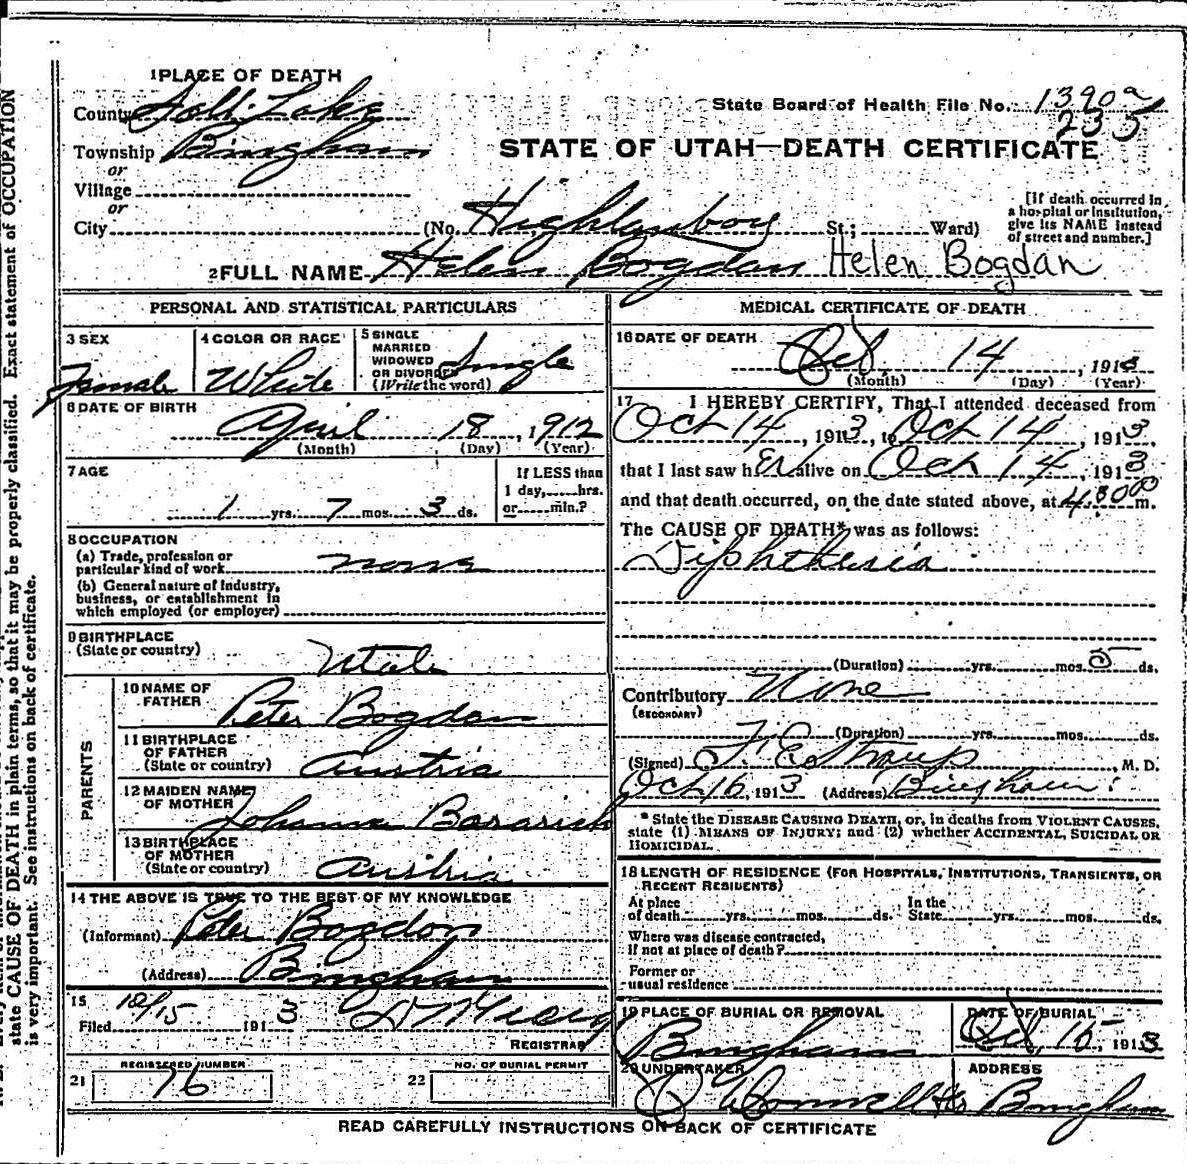 1 PLACE OF DEATH
County Salt Lake
State Board of Health File No. 1390a
235
Township Bingham
STATE OF UTAH—DEATH CERTIFICATE
or
Village
or
City (No. Highlandboy St.; Ward)
[If death occurred in a hospital or institution, give its NAME instead of street and number.]
2 FULL NAME Helen Bogdan Helen Bogdan
PERSONAL AND STATISTICAL PARTICULARS
3 SEX
Female
4 COLOR OR RACE
White
5 SINGLE
MARRIED
WIDOWED
OR DIVORCED
(Write the word)
Single
6 DATE OF BIRTH
April 18, 1912
(Month) (Day) (Year)
7 AGE
1 yrs. 7 mos. 3 ds.
If LESS than
1 day,......hrs.
or......min.?
8 OCCUPATION
(a) Trade, profession or
particular kind of work none
(b) General nature of industry,
business, or establishment in
which employed (or employer)
9 BIRTHPLACE
(State or country)
Utah
PARENTS
10 NAME OF
FATHER
Peter Bogdan
11 BIRTHPLACE
OF FATHER
(State or country)
Austria
12 MAIDEN NAME
OF MOTHER
Johanna
13 BIRTHPLACE
OF MOTHER
(State or country)
Austria
14 THE ABOVE IS TRUE TO THE BEST OF MY KNOWLEDGE
(Informant) Peter Bogdon
(Address) Bingham
15
Filed 10/15 1913
REGISTRAR
REGISTERED NUMBER
21 76
NO. OF BURIAL PERMIT
22
MEDICAL CERTIFICATE OF DEATH
16 DATE OF DEATH
Oct 14, 1913
(Month) (Day) (Year)
17 I HEREBY CERTIFY, That I attended deceased from
Oct 14, 1913, to Oct 14, 1913,
that I last saw h Er alive on Oct 14, 1913
and that death occurred, on the date stated above, at 4:30 m.
The CAUSE OF DEATH* was as follows:
Diphtheria
(Duration) yrs. mos. 5 ds.
Contributory None
(SECONDARY)
(Duration) yrs. mos. ds.
(Signed) F. E. Straup, M. D.
Oct 16, 1913 (Address) Bingham
* State the DISEASE CAUSING DEATH, or, in deaths from VIOLENT CAUSES,
state (1) MEANS OF INJURY; and (2) whether ACCIDENTAL, SUICIDAL OR
HOMICIDAL.
18 LENGTH OF RESIDENCE (FOR HOSPITALS, INSTITUTIONS, TRANSIENTS, OR
RECENT RESIDENTS)
At place
of death yrs. mos. ds.
In the
State yrs. mos. ds.
Where was disease contracted,
if not at place of death?
Former or
usual residence
19 PLACE OF BURIAL OR REMOVAL
Bingham
DATE OF BURIAL
Oct 15, 1913
20 UNDERTAKER
ADDRESS
Bingham
READ CAREFULLY INSTRUCTIONS ON BACK OF CERTIFICATE
state CAUSE OF DEATH in plain terms, so that it may be properly classified. Exact statement of OCCUPATION
is very important. See instructions on back of certificate.